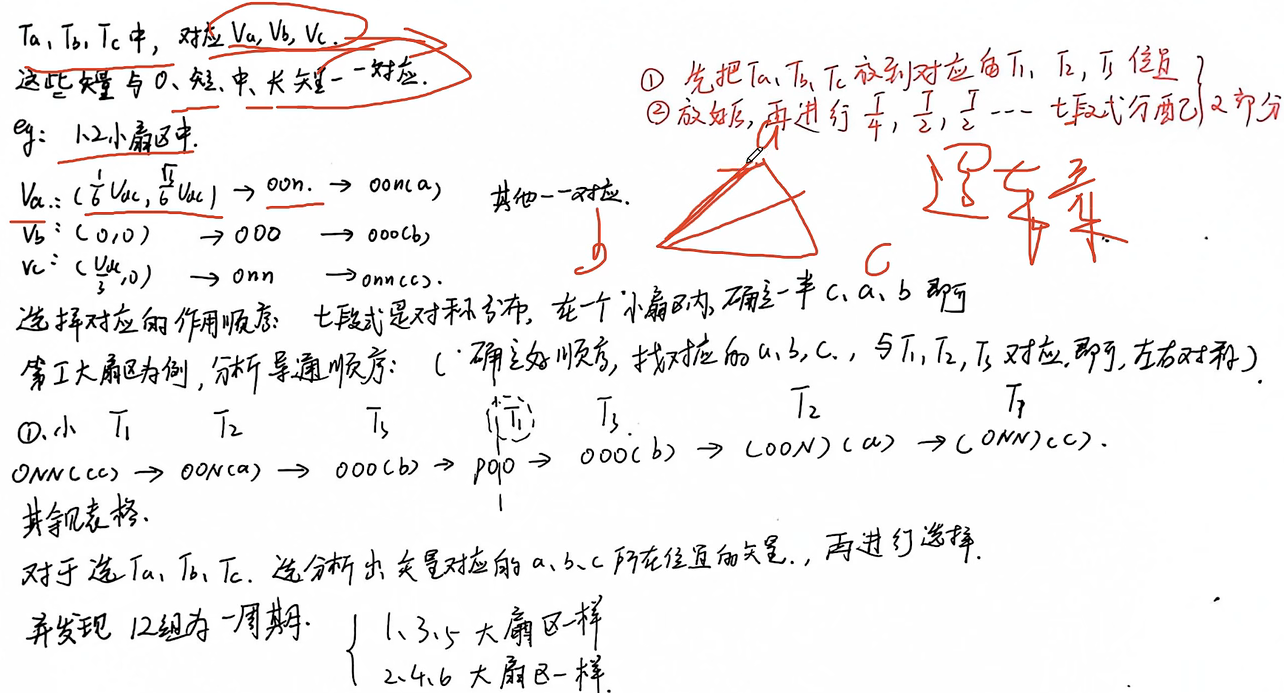 Ta, Tb, Tc 中, 对应 Va, Vb, Vc.
这些矢量与 0、短、中、长矢量一一对应.
eg: 1.2小扇区中.
Va: (1/6 Vdc, √3/6 Vdc) → oon. → oon(a)
Vb: (0,0) → 000 → 000(b)
Vc: (Vdc/3, 0) → onn → onn(c).
其他一一对应.
① 先把Ta、Tb、Tc 放到对应的T1、T2, T3 位置
② 放好后, 再进行 T/4, T/2, T/2 --- 七段式分配
2部分
a
b
c
选择对应的作用顺序: 七段式是对称分布, 在一个小扇区内, 确定一半 c、a、b 即可
第I大扇区为例, 分析导通顺序: (确定好顺序, 找对应的 a,b,c., 与T1,T2,T3 对应.即可, 左右对称)
①.小 T1 T2 T3 T1 T3. T2 T1
ONN(c) → OON(a) → 000(b) → poo → 000(b) → (OON)(a) → (ONN)(c).
其余见表格.
对于选Ta、Tb、Tc. 选分析出矢量对应的 a、b、c 所在位置的矢量., 再进行选择.
并发现 12组为一周期.
1、3、5 大扇区一样
2、4、6 大扇区一样.